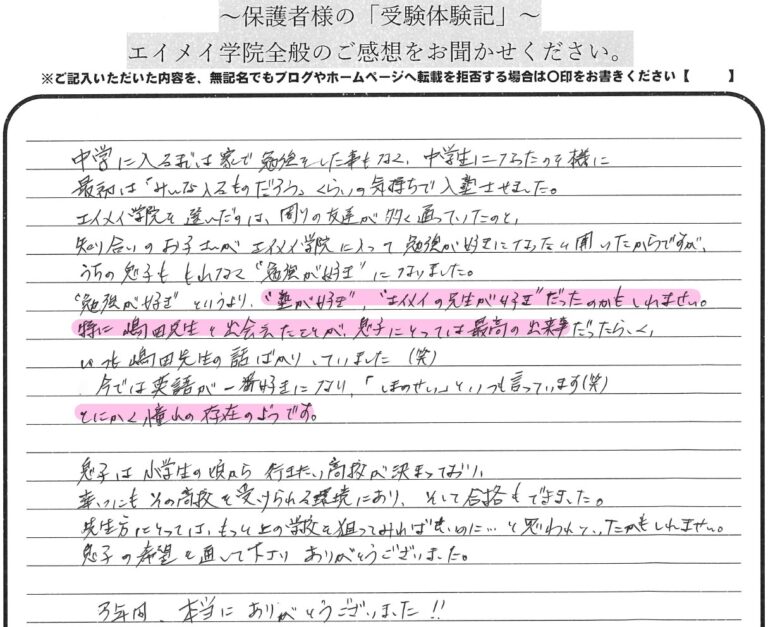 ～保護者様の「受験体験記」～
エイメイ学院全般のご感想をお聞かせください。
※ご記入いただいた内容を、無記名でもブログやホームページへ転載を拒否する場合は〇印をお書きください【　　】
中学に入るまでは家で勉強をした事もなく、中学生になったのを機に
最初は「みんな入るものだろう」くらいの気持ちで入塾させました。
エイメイ学院を選んだのは、周りの友達が多く通っていたのと、
知り合いのお子さんがエイメイ学院に入って勉強が好きになったと聞いたからですが、
うちの息子ももれなく"勉強が好き"になりました。
"勉強が好き"というより、"塾が好き"、"エイメイの先生が好き"だったのかもしれません。
特に嶋田先生と出会えたことが、息子にとっては最高の出来事だったらしく、
いつも嶋田先生の話ばかりしていました(笑)
今では英語が一番好きになり、「しまのせい」といつも言っています(笑)
とにかく憧れの存在のようです。
息子は小学生の頃から行きたい高校が決まっており、
幸いにもその高校を受けられる環境にあり、そして合格もできました。
先生方にとっては、もっと上の学校を狙ってみれば良いのに…と思われていたかもしれません。
息子の希望を通して下さりありがとうございました。
3年間、本当にありがとうございました!!